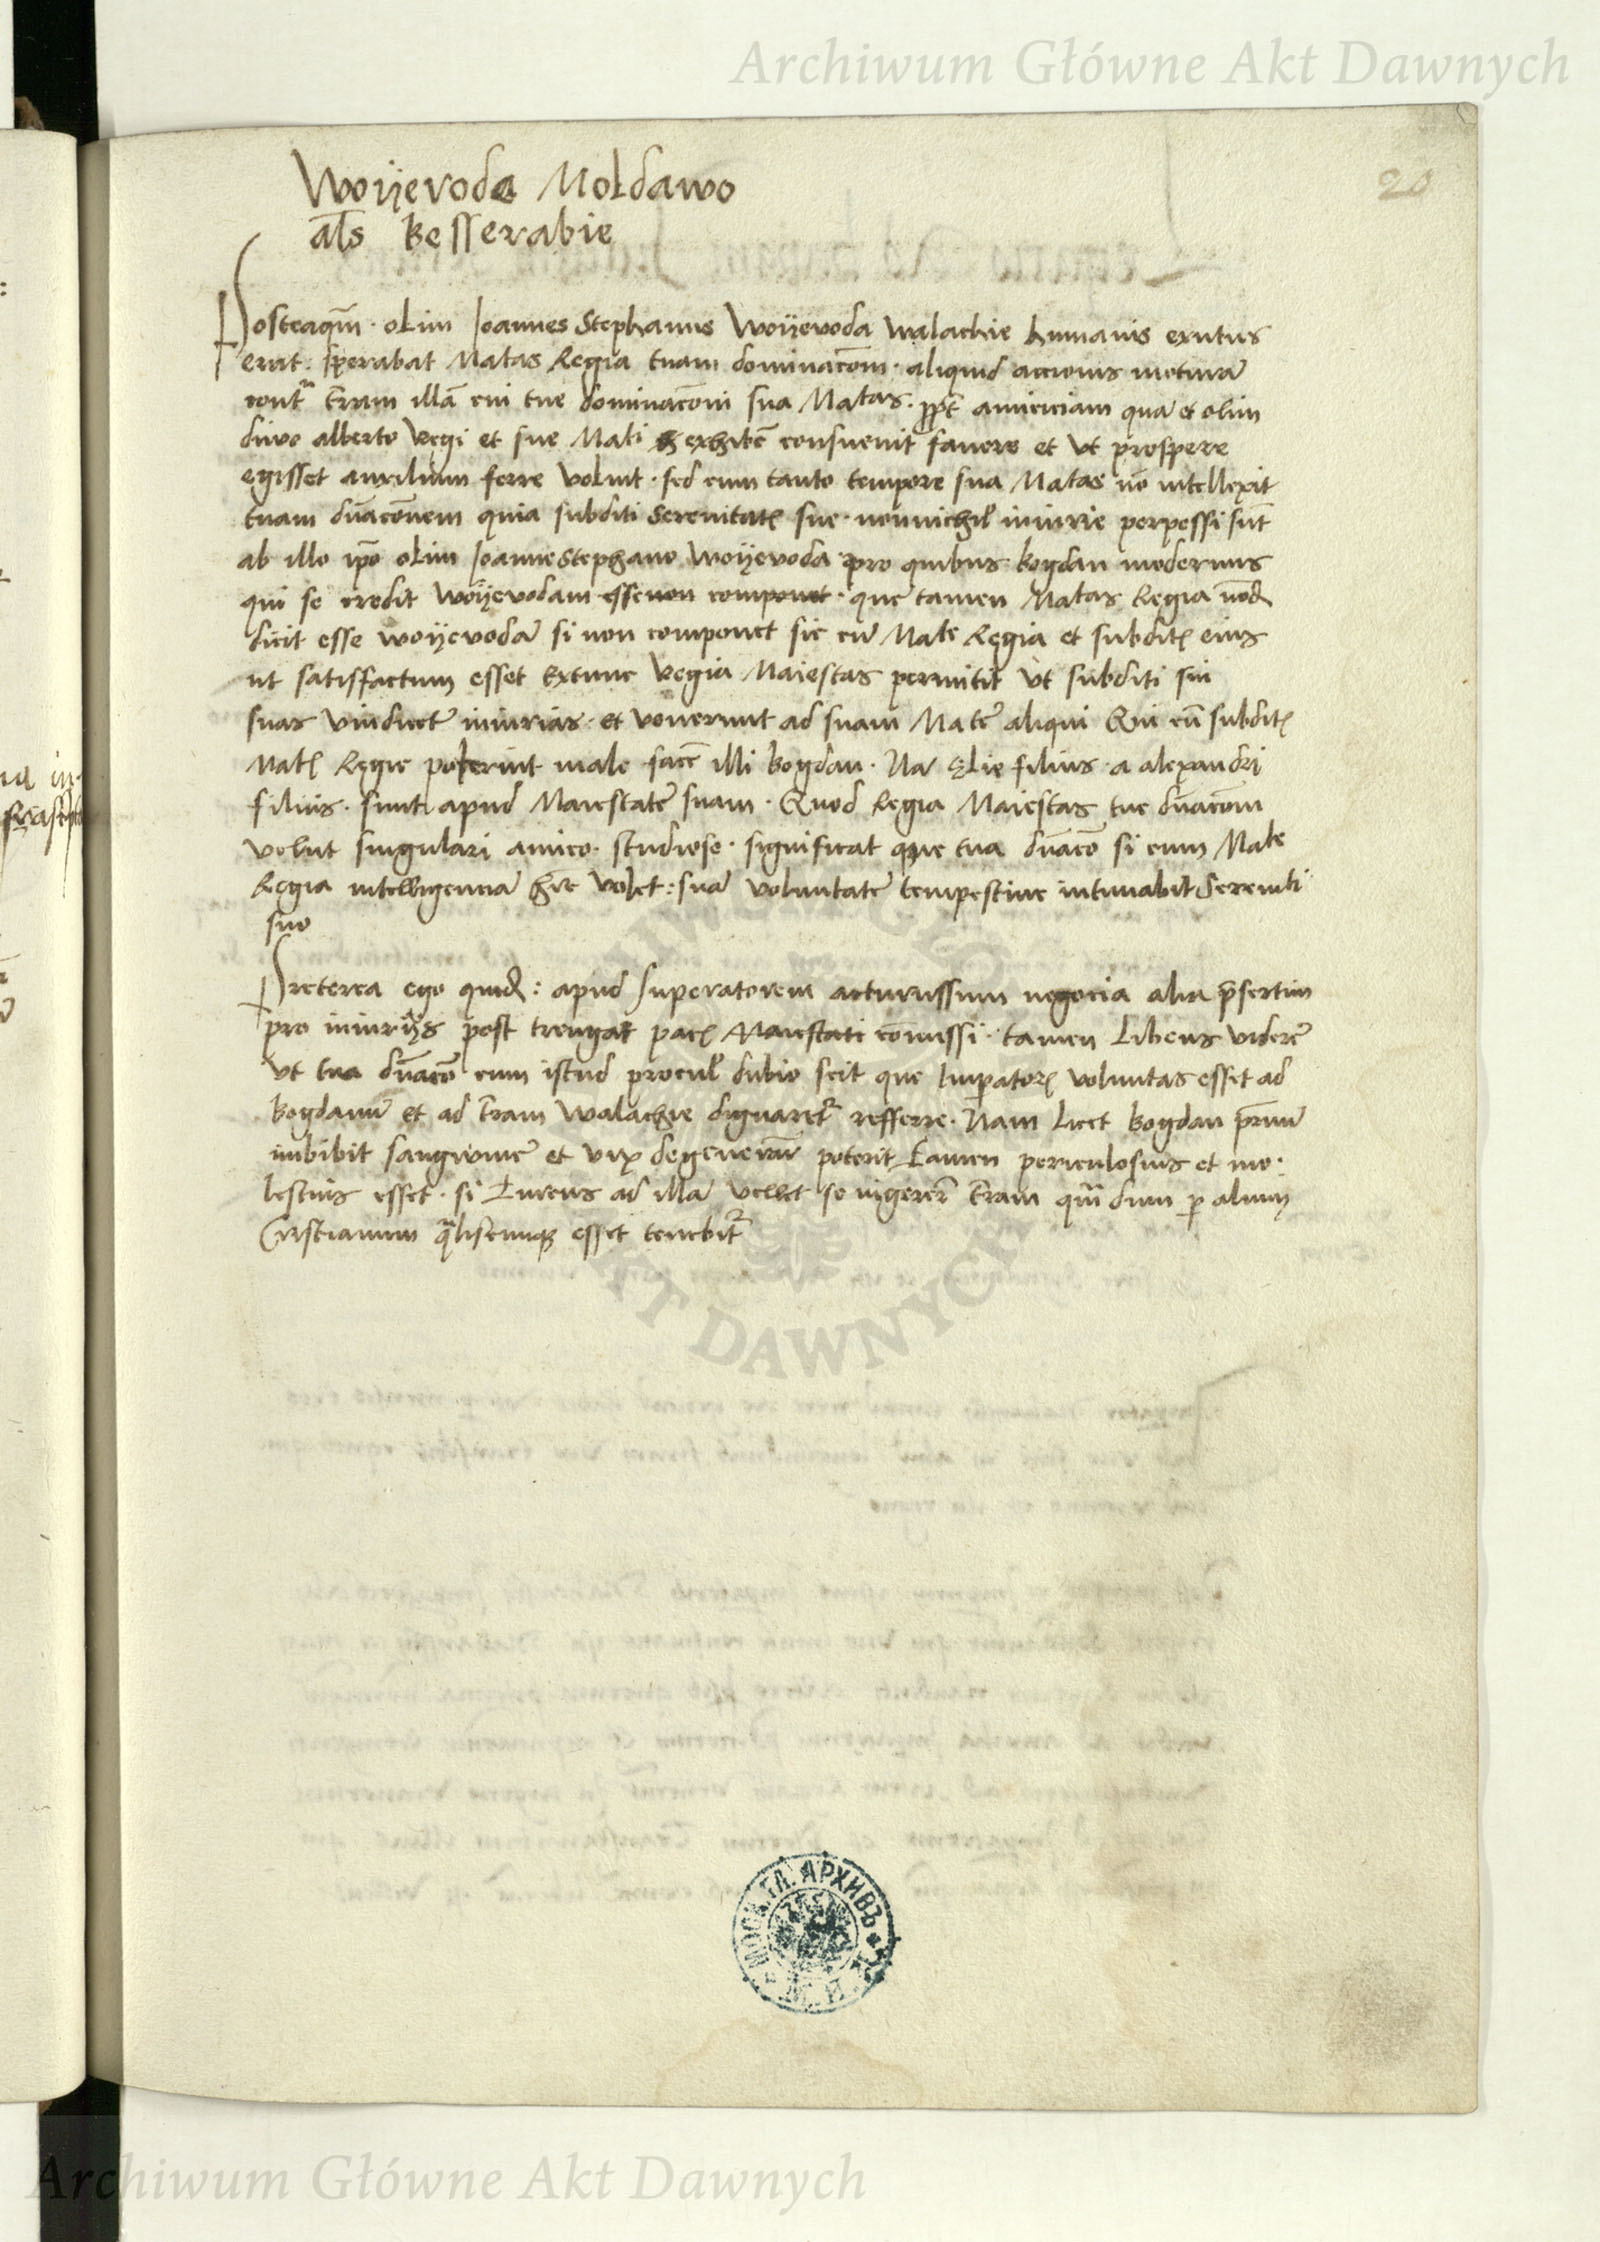 Archiwum Główne Akt Dawnych
20
Woÿevode Moldawo
al̃s Besserabie
Posteaqm̃ · olim Joannes Stephanus Woÿevoda Walachie humanis exutus
erat : sperabat Matas Regia tuam dominacõm · aliquid accionis moturã
contª t̃ram illã cui tue dominacõni sua Matas · ppt̃ amiciciam qua et olim
divo alberto Regi et sue Mati exhibẽ consuevit favere et ut prospere
egisset auxilium ferre voluit · sed cum tanto tempore sua Matas nõ intellexit
tuam dñacõnem quia subditi Serenitatꝭ sue · nonnichil iniurie perpessi sũt
ab illo ip̃o olim Joanne Stephano Woÿevoda pro quibus Bogdan modernus
qui se credit Woÿevodam esse non componet · que tamen Matas Regia nond̃
dicit esse woÿevodã si non componet sic cũ Mate Regia et subditꝭ eius
ut satisfactum esset Extunc Regia Maiestas permitit ut subditi sui
suas vindicet̃ iniurias · et venerunt ad suam Matẽ aliqui Qui cũ subditꝭ
Matꝭ Regie poterint male facẽ illi Bogdan · Nã Elie filius · a alexandri
filius · sunt apud Maiestatẽ suam · Quod Regia Maiestas tue dñacõni
velut singulari amico · studiose · significat que tua dñacõ si cum Mate
Regia intelligenciã h̃re volet : suã voluntatẽ tempestive intimabit Sereniti
sue
Preterea ego quid̃ : apud Imperatorem acturus sum negocia alia p̃sertim
pro iniurÿs post treugaꝝ pacꝭ Maiestati cõmissi · tamen Libens viderẽ
ut tua dñacõ cum istud procul dubio scit que Imperatorꝭ voluntas esset ad
Bogdanũ et ad t̃ram Walachie dignaret̃ refferre · Nam licet Bogdan p̃rnũ
imbibit sanguinẽ et vix degenerare poterit tamen periculosius et mo·
lestius esset · si Turcus ad illã vellet se ingerere t̃ram qm̃ dum p alium
Cristianum qªliscumqꝫ esset tenebit̃
МОСК. ГЛ. АРХИВЪ
Archiwum Główne Akt Dawnych